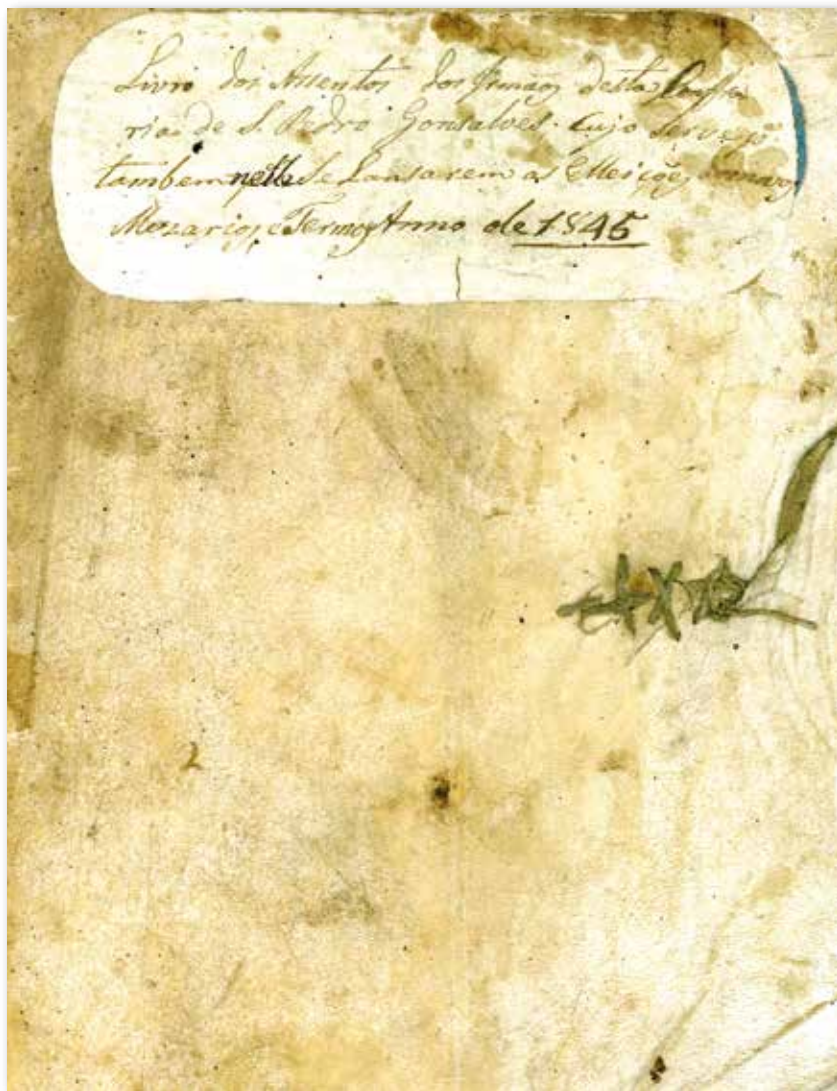 Livro dos Assentos dos Irmãos desta Confra
ria de S. Pedro Gonsalves. Cujo serve pª
tambem nelle se Lansarem as Elleições
Mezarios, e Termos Anno de 1845
2